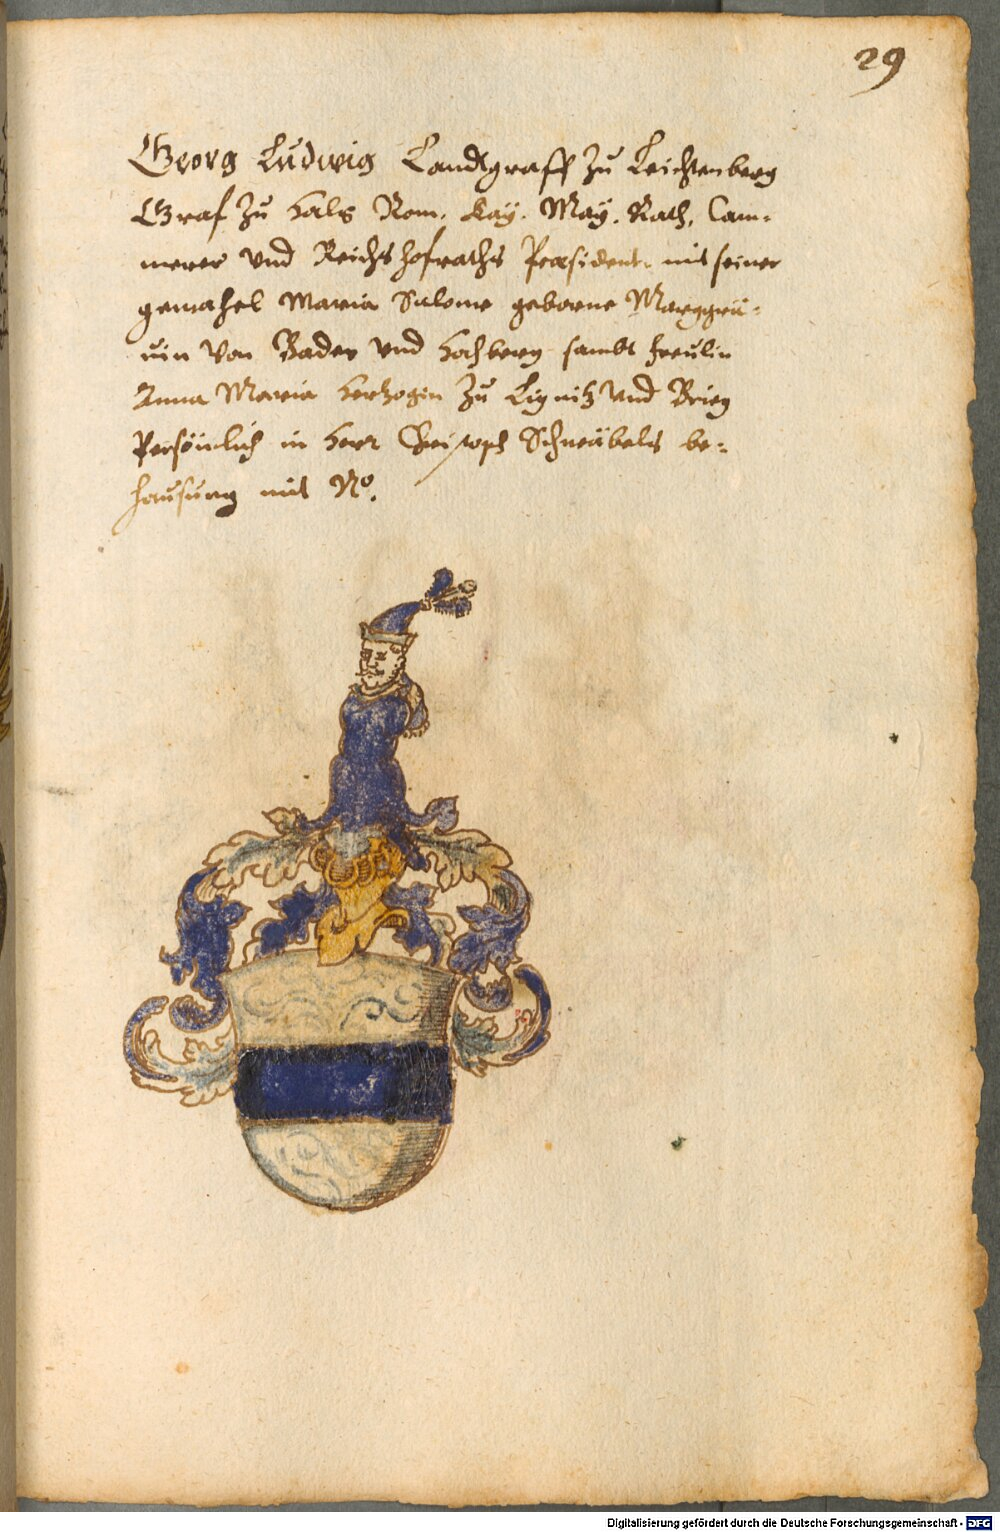 29
Georg Ludwig Landtgraff zu Leichtenberg
Graf zu Hals Rom. Kay. May. Rath, Cam-
merer vnd Reichshofraths Praesident. mit seiner
gemahel Maria Salome geborne Marggrä-
uin von Baden vnd Hochberg sambt freulin
Anna Maria Hertzogin zu Lignitz vnd Brieg
Persönlich in Herr Christoph Schneübels be-
hausung mit No.
Digitalisierung gefördert durch die Deutsche Forschungsgemeinschaft - DFG